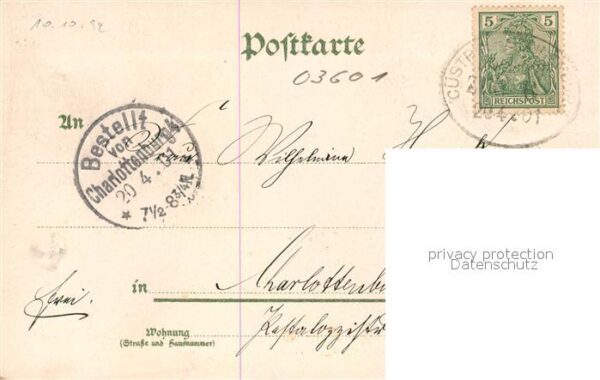 10.10.92
Postkarte
03601
5 5
REICHSPOST
CÜSTR
20 4 01
An
Bestellt
von
Charlottenburg
20 4.
7½-8¾N.
Frau Wilhelmine H
privacy protection
Datenschutz
in Charlottenbu
frei.
Wohnung
(Straße und Hausnummer)
Pestalozzistr